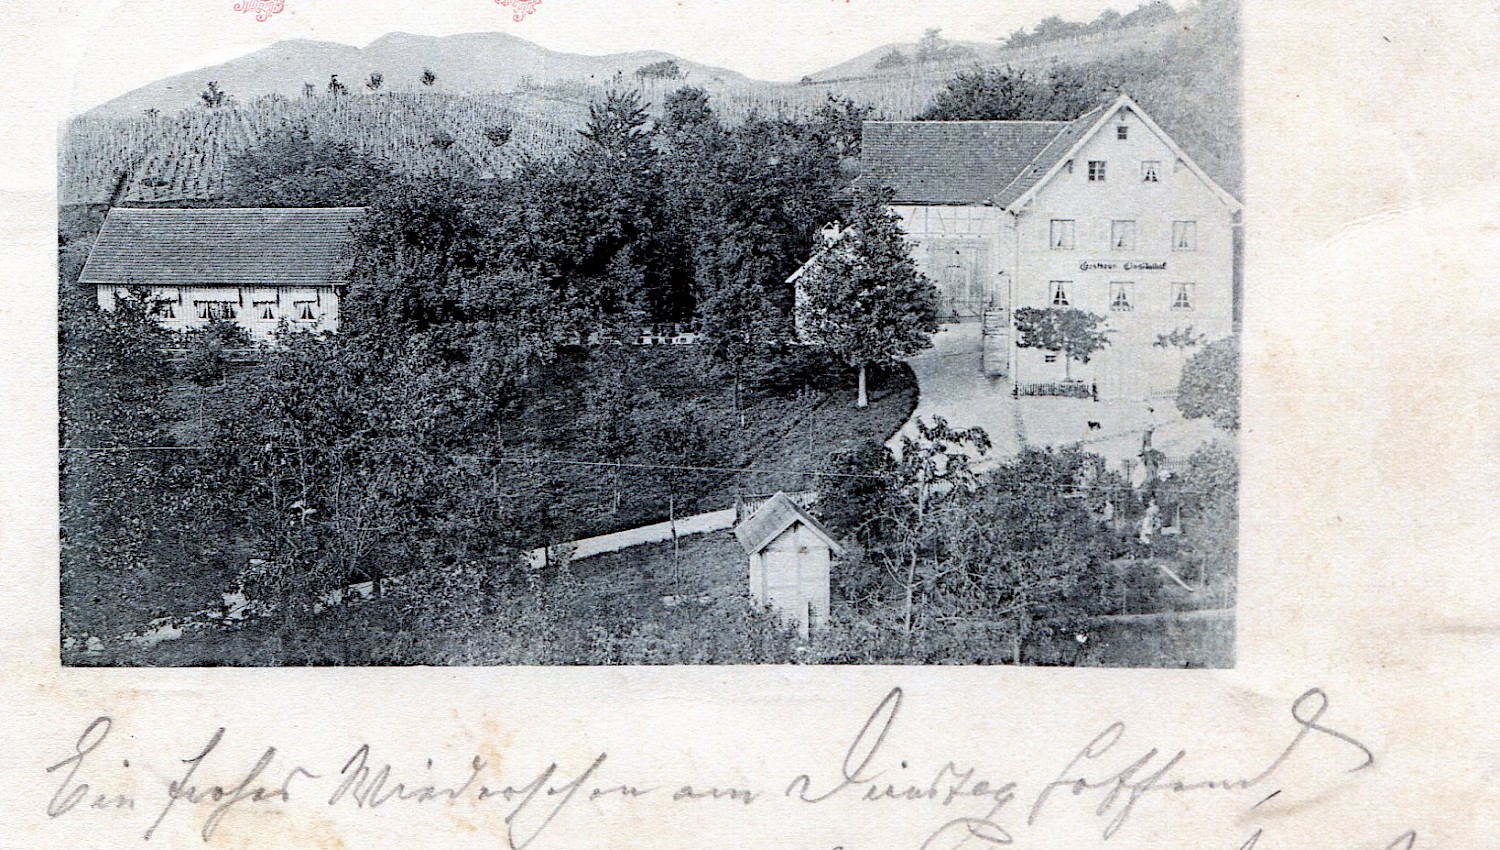 Gasthaus
Ein frohes Wiedersehen am Dienstag hoffend,